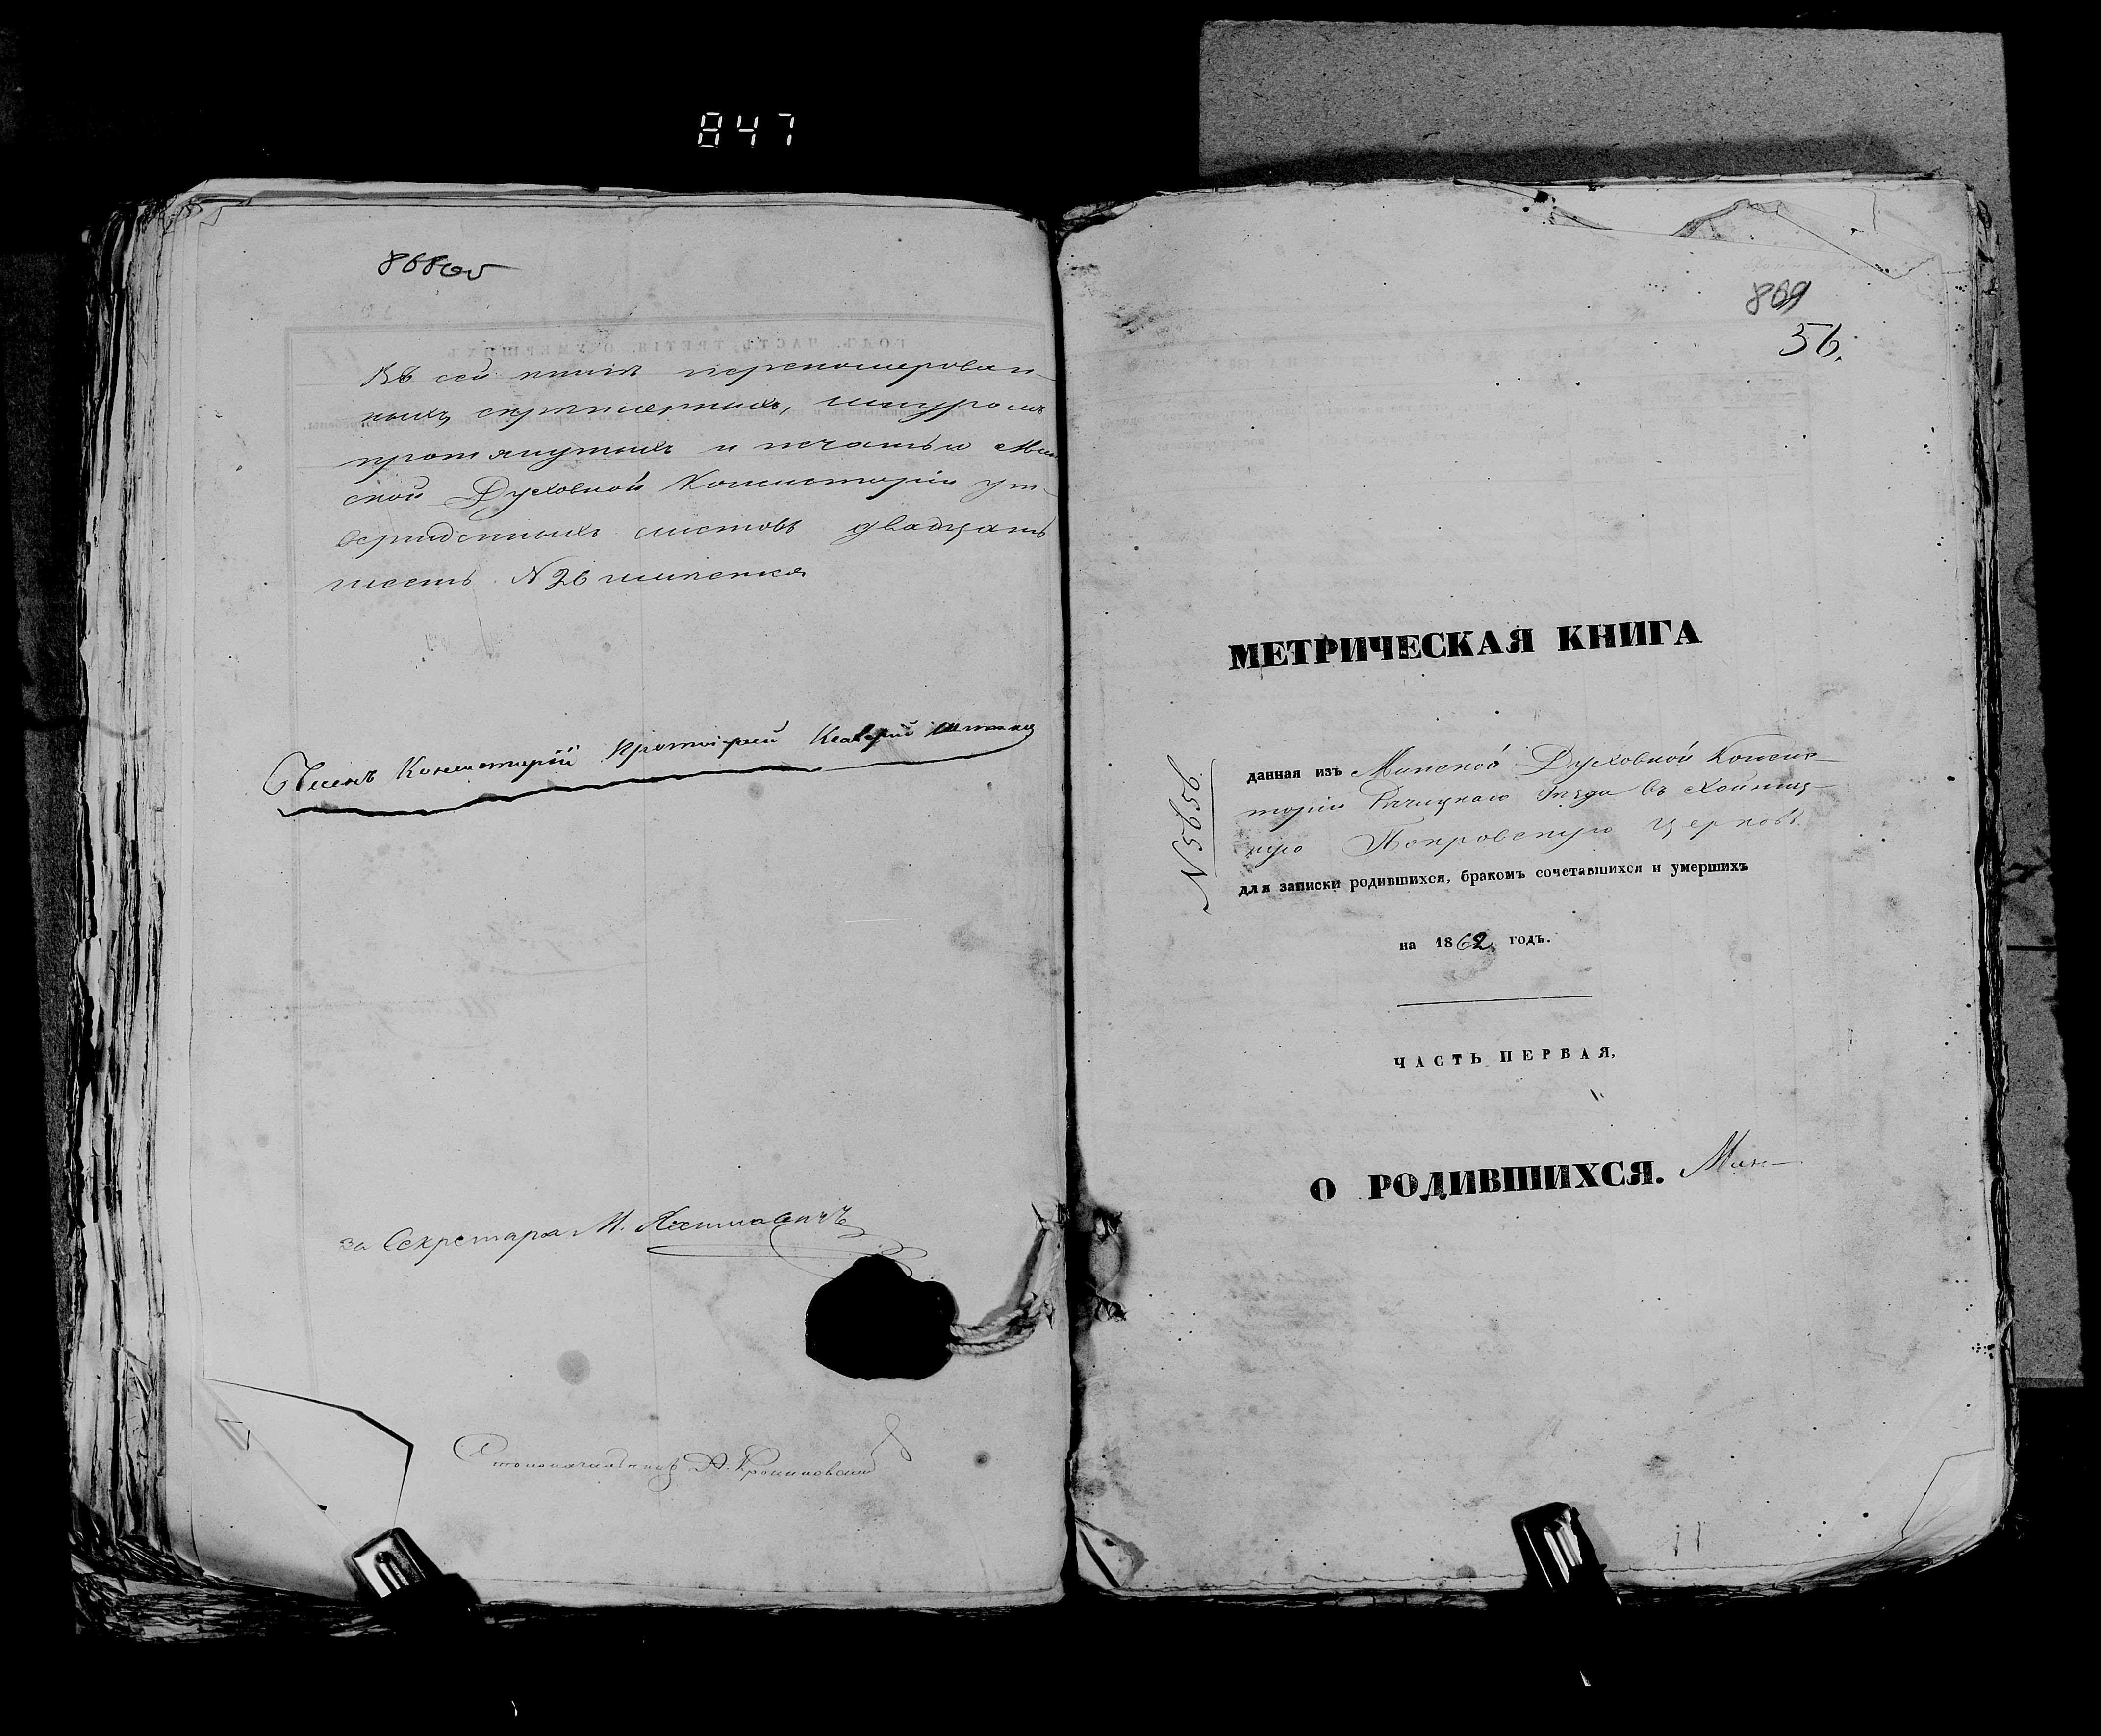 847
868об
Въ сей книгѣ перенумерован-
ныхъ, скрѣпленныхъ, шнуромъ
протянутыхъ и печатью Мин
ской Духовной Консисторіи ут-
вержденныхъ листовъ двадцать
шесть. N 26
Членъ Консисторіи Протоіерей
за Секретаря М.
Столоначальникъ
869
56.
МЕТРИЧЕСКАЯ КНИГА
N 5656.
данная изъ Минской Духовной Консис-
торіи Рѣчицкаго Уѣзда въ Хойниц-
кую Покровскую церковь.
для записки родившихся, бракомъ сочетавшихся и умершихъ
на 1862 годъ.
ЧАСТЬ ПЕРВАЯ,
О РОДИВШИХСЯ. Мин-